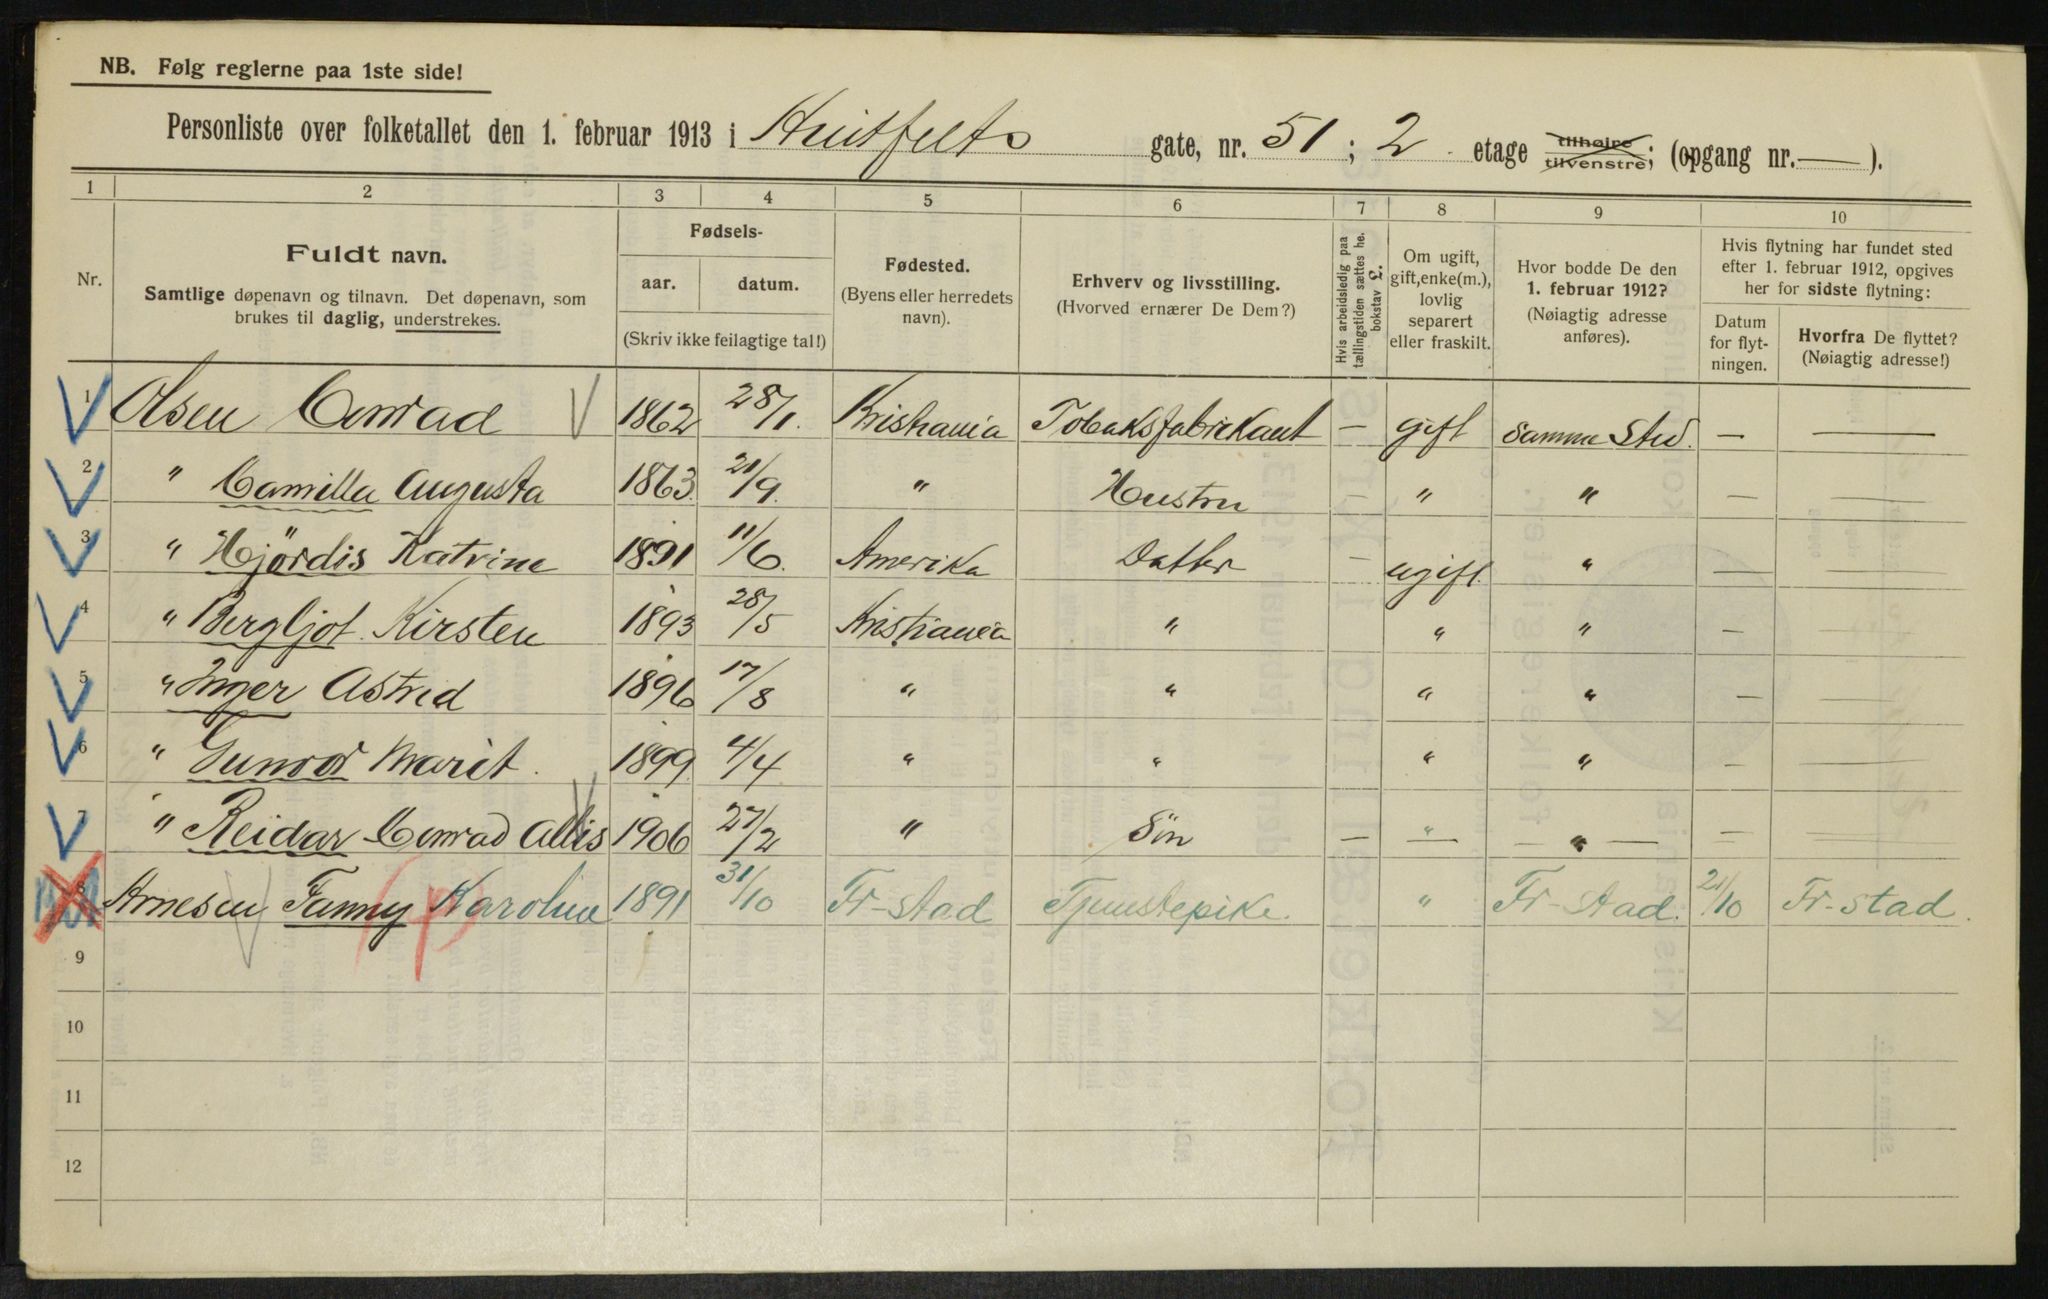 NB. Følg reglerne paa 1ste side!
Personliste over folketallet den 1. februar 1913 i Huitfelts gate, nr. 51; 2 etage tilhøire tilvenstre; (opgang nr. — ).
1 2 3 4 5 6 7 8 9 10
Nr.
Fuldt navn.
Samtlige døpenavn og tilnavn. Det døpenavn, som
brukes til daglig, understrekes.
Fødsels-
aar. datum.
(Skriv ikke feilagtige tal!)
Fødested.
(Byens eller herredets
navn).
Erhverv og livsstilling.
(Hvorved ernærer De Dem?)
Hvis arbeidsledig paa
tællingstiden sættes he.
bokstav L.
Om ugift,
gift, enke(m.),
lovlig
separert
eller fraskilt.
Hvor bodde De den
1. februar 1912?
(Nøiagtig adresse
anføres).
Hvis flytning har fundet sted
efter 1. februar 1912, opgives
her for sidste flytning:
Datum
for flyt-
ningen.
Hvorfra De flyttet?
(Nøiagtig adresse!)
1 Olsen Conrad 1862 28/1. Kristiania Tobaksfabrikant — gift samme Sted. — —
2 " Camilla Augusta 1863. 21/9. " Hustru — " " — —
3 " Hjördis Katrine 1891 11/6. Amerika Datter — ugift " — —
4 " Bergljot Kirsten 1893 28/5 Kristiania " " " — —
5 " Inger Astrid 1896 17/8 " " " " — —
6 " Gunvor Marit. 1899 4/4 " " " " — —
7 " Reidar Conrad Allis 1906 27/2 " Sön — " — " — — —
8 Arnesen Fanny Karoline 1891 31/10 Fr-stad Tjenestepike. " Fr-stad. 21/10 Fr-stad.
9
10
11
12